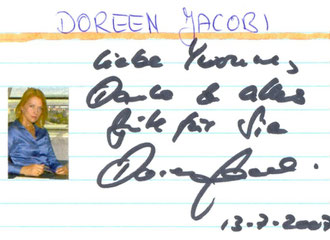 DOREEN JACOBI
Liebe Yvonne,
Danke & alles
Gute für Sie
Doreen Jacobi
13.7.2007